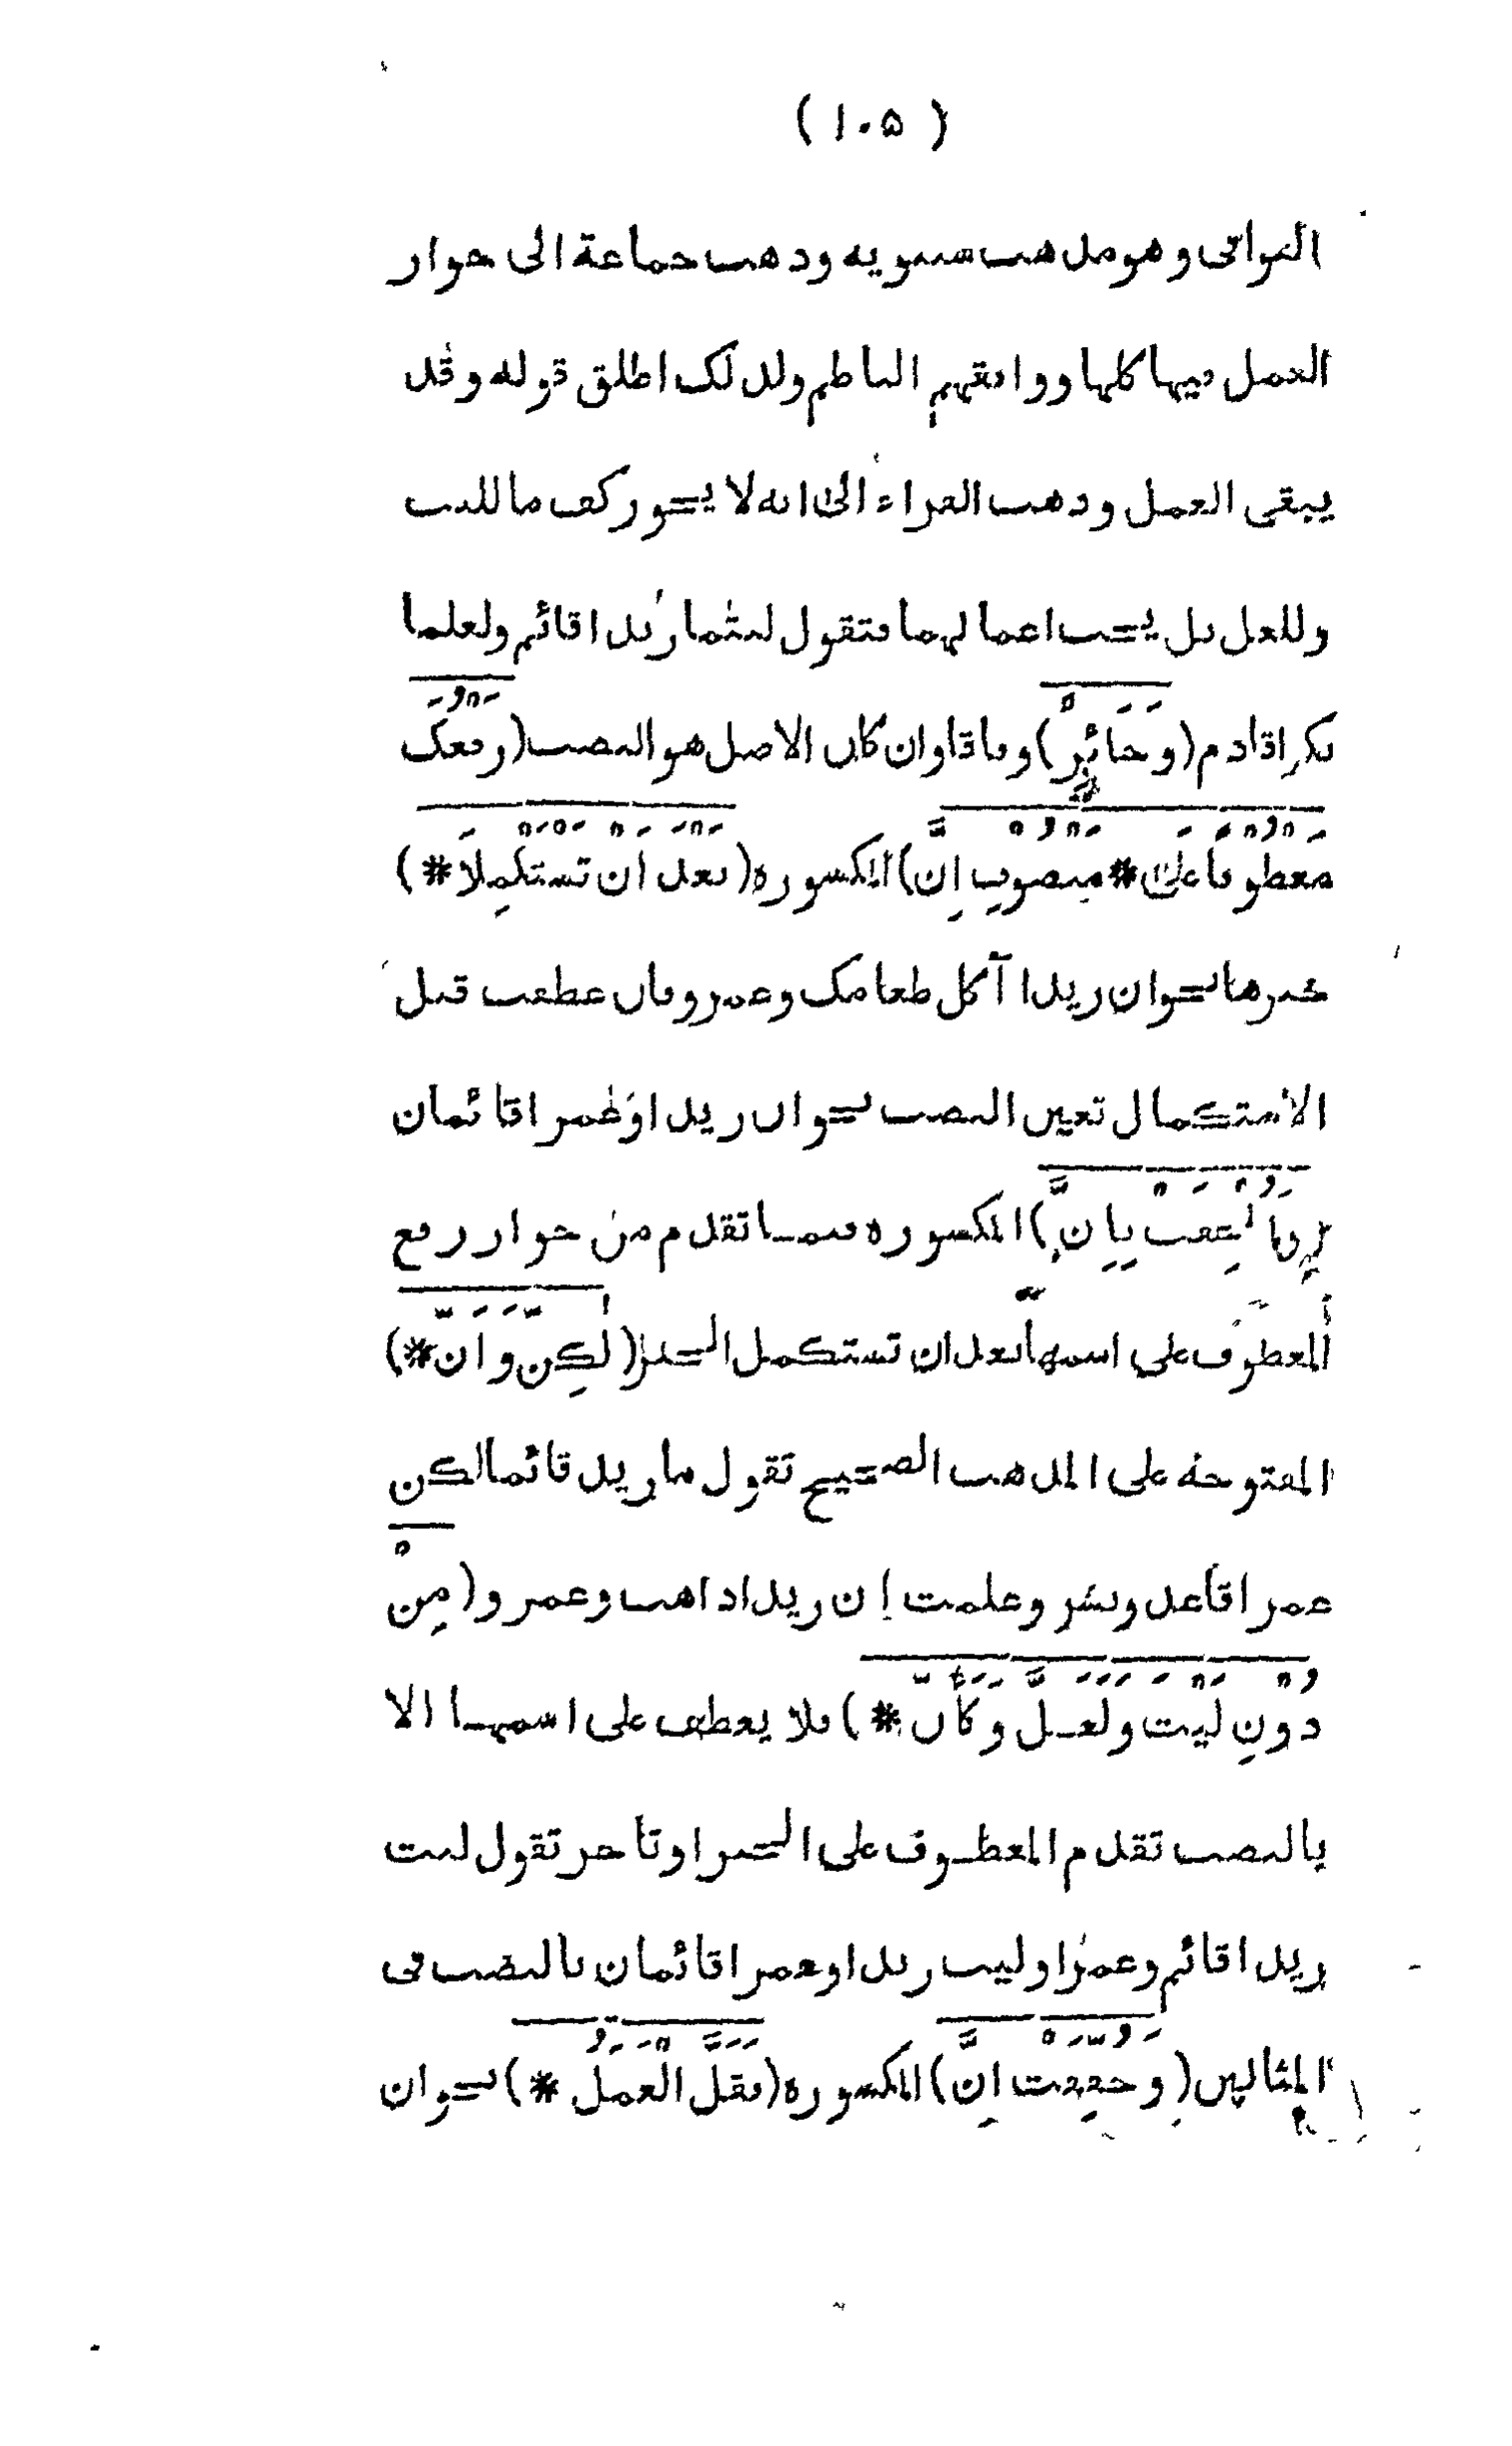 ( ١٠۵ )
البواقي وهو مذهب سيبويه وذهب جماعة الى جواز
العمل فيها كلها ووافقهم الناظم ولذلک اطلق قوله وقد
يبقى العمل وذهب الفراء الى انه لا يجوز كف ما لليت
وللعل بل يجب اعمالهما فتقول ليتما زيدا قائم ولعلما
بكرا قادم (وَجَائِزٌ) وفاقا وان كان الاصل هو النصب (رَفْعُکَ
مَعْطُوفًا عَلَى * مَنْصُوبِ إِنَّ) المكسورة (بَعْدَ أَنْ تَسْتَكْمِلَا *)
خبرها نحو ان زيدا آكل طعامک وعمرو فان عطف قبل
الاستكمال تعين النصب نحو ان زيدا وعمرا قائمان
(وَأُلْحِقَتْ بِإِنَّ) المكسورة فيمـا تقدم من جواز رفع
المعطوف على اسمها بعد ان تستكمل الخبر (لَكِنَّ وَأَنَّ *)
المفتوحة على المذهب الصحيح تقول ما زيد قائما لكن
عمرا قاعد وبشر وعلمت ان زيدا ذاهب وعمرو (مِنْ
دُونِ لَيْتَ وَلَعَـلَّ وَكَأَنَّ *) فلا يعطف على اسمهـا الا
بالنصب تقدم المعطـوف على الخبر او تاخر تقول ليت
زيدا قائم وعمرا وليت زيدا وعمرا قائمان بالنصب في
المثالين (وَخُفِّفَتْ إِنَّ) المكسورة (فَقَلَّ الْعَمَلُ *) نحو ان